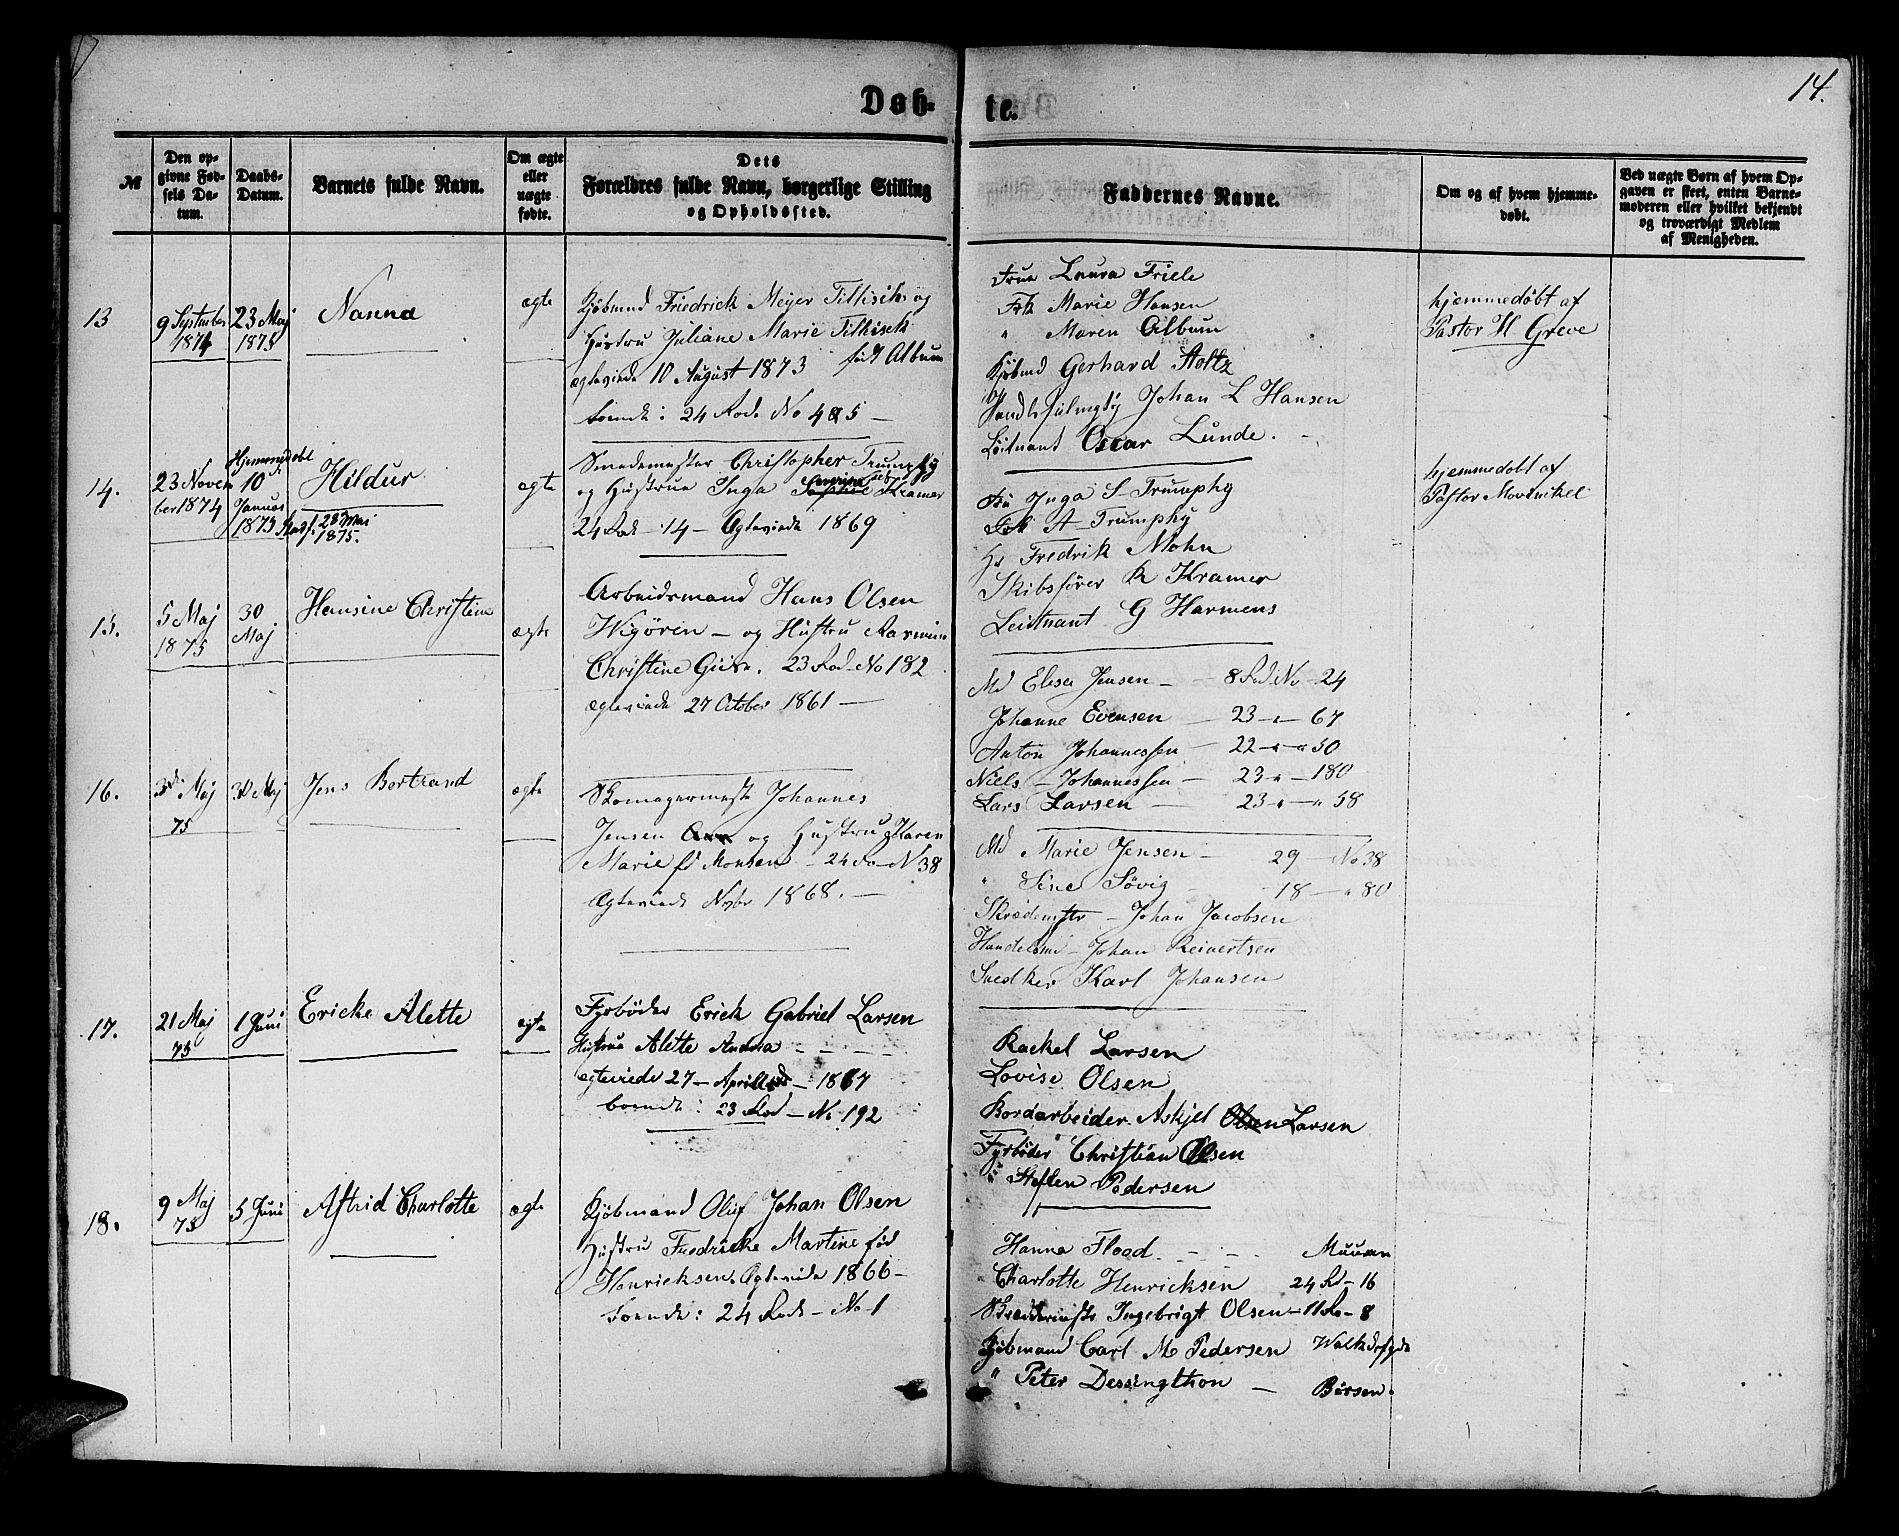 14.
Døb-
te.
№
Den op-
givne Fød-
sels Da-
tum.
Daabs-
Datum.
Barnets fulde Navn.
Om ægte
eller
uægte
fødte.
Dets
Forældres fulde Navn, borgerlige Stilling
og Opholdssted.
Faddernes Navne.
Om og af hvem hjemme-
døbt.
Ved uægte Børn af hvem Op-
gaven er skeet, enten Barne-
moderen eller hvilket bekjendt
og troværdigt Medlem
af Menigheden.
13
9 September
1874
23 Maj
1875
Nanna
ægte
Kjøbmd Friedrick Meyer Tillisch og
Hustru Juliane Marie Tillisch
født Album
ægteviede 10 August 1873
boende: 24 Rode No 485 —
Frue Laura Friele
Frk Marie Hansen
" Maren Album
Kjøbmd Gerhard Stoltz
Johan L Hansen
Løitnant Oscar Lunde.
hjemmedøbt af
Pastor H Greve
14.
23 Novem
ber 1874
Hjemmedøbt
10
Januar
1875
23 Mai
1875.
Hildur
ægte
Smedemester Christopher Trumphy
og Hustrue Inga Kramer
24 Rod - 14 - Ægteviede 1869
Inga S Trumphy
A Trumphy
Hr Fredrik Mohn
Skibsfører R Kramer
Leitnant G Harmens
hjemmedøbt af
Pastor Movinckel
15.
5 Maj
1875
30
Maj
Hansine Christine
ægte
Arbeidsmand Hans Olsen
Wigören — og Hustru
Christine 23 Rod - No 182
ægteviede 27 October 1861 —
Md Elesa Jensen — 8 Rod No 24
Johanne Evensen — 23 - " - 67
Anton Johannessen — 22 - " - " 50
Niels - Johannessen — 23 - " - 180
Lars Larsen — 23 - " - " 58
16.
3die Maj
75
30 Maj
Jens Bertrand
ægte
Skomagermester Johannes
Jensen og Hustru Karen
Marie fø Monsen - 24 Ro - N 38
Ægteviede Nvbr 1868. —
Md Marie Jensen — 29 — No 38
" Sine Søvig — 18 — " 80
Skrædemstr — Johan Jacobsen
Handelsmd - Johan Reinertsen
Snedker Karl Johansen
17.
21 Maj
75
1 Juni
Ericke Alette
ægte
Fyrbøder Erick Gabriel Larsen
Hustrue Alette Andrea
ægteviede 27 - April - 1867
boende: 23 Rod - No 192
Rackel Larsen
Lovise Olsen
Bordarbeider Askjel Olsen Larsen
Fyrbøder Christian Olsen
" Steffen Pedersen
18.
9 Maj
75
5 Juni
Astrid Charlotte
ægte
Kjøbmand Oluf Johan Olsen
Hustru Fredricke Martine fød
Henricksen. Ægteviede 1866 -
boende: 24 Rode - No 1
Hanna Flood. - - - Muuren
Charlotte Henricksen 24 Rd - 16
Skræddermstr Ingebrigt Olsen - 11 Ro - 8
Kjøbmand Carl M Pedersen
" Peter Dessingthon — Børsen.